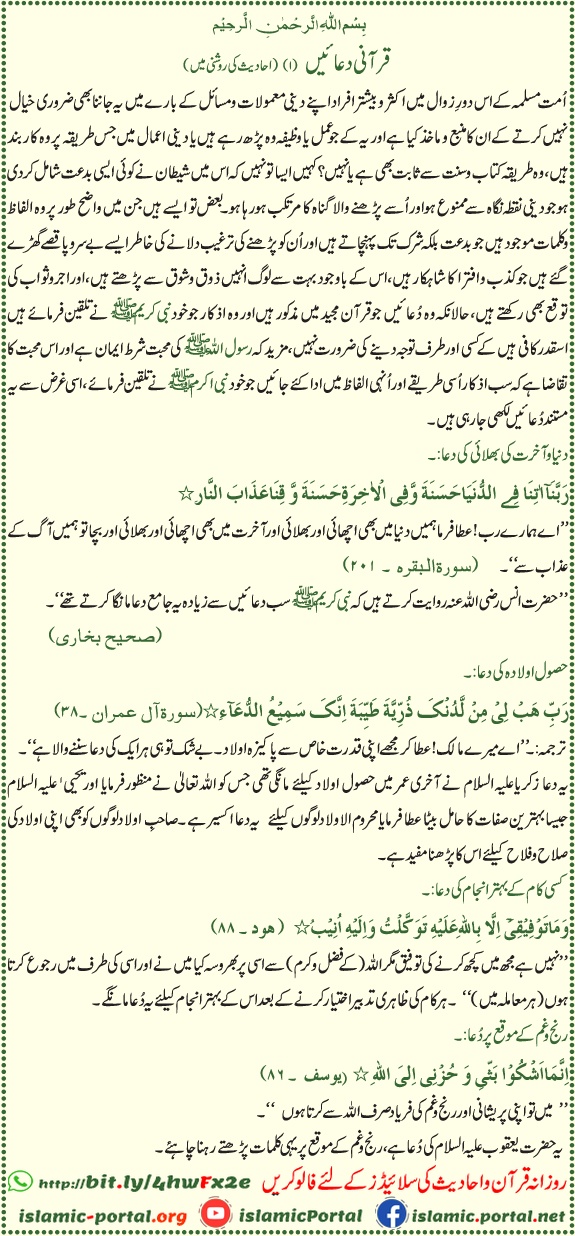 بِسْمِ اللهِ الرَّحْمٰنِ الرَّحِيْمِ
قرآنی دعائیں (۱) (احادیث کی روشنی میں)
اُمت مسلمہ کے اس دورِ زوال میں اکثر و بیشتر افراد اپنے دینی معمولات و مسائل کے بارے میں یہ جاننا بھی ضروری خیال
نہیں کرتے کے ان کا منبع و ماخذ کیا ہے اور یہ کے جو عمل یا وظیفہ وہ پڑھ رہے ہیں یا دینی اعمال میں جس طریقہ پر وہ کار بند
ہیں، وہ طریقہ کتاب و سنت سے ثابت بھی ہے یا نہیں؟ کہیں ایسا تو نہیں کہ اس میں شیطان نے کوئی ایسی بدعت شامل کر دی
ہو جو دینی نقطۂ نگاہ سے ممنوع ہو اور اُسے پڑھنے والا گناہ کا مرتکب ہو رہا ہو۔ بعض تو ایسے ہیں جن میں واضح طور پر وہ الفاظ
و کلمات موجود ہیں جو بدعت بلکہ شرک تک پہنچاتے ہیں اور اُن کو پڑھنے کی ترغیب دلانے کی خاطر ایسے بے سرو پا قصے گھڑے
گئے ہیں جو کذب و افترا کا شاہکار ہیں، اس کے باوجود بہت سے لوگ انہیں ذوق و شوق سے پڑھتے ہیں، اور اجر و ثواب کی
توقع بھی رکھتے ہیں، حالانکہ وہ دُعائیں جو قرآن مجید میں مذکور ہیں اور وہ اذکار جو خود نبی کریم ﷺ نے تلقین فرمائے ہیں
اسقدر کافی ہیں کے کسی اور طرف توجہ دینے کی ضرورت نہیں، مزید کہ رسول اللہ ﷺ کی محبت شرط ایمان ہے اور اس محبت کا
تقاضا ہے کہ سب اذکار اُسی طریقے اور اُنہی الفاظ میں ادا کئے جائیں جو خود نبی اکرم ﷺ نے تلقین فرمائے، اسی غرض سے یہ
مستند دُعائیں لکھی جا رہی ہیں۔
دنیا و آخرت کی بھلائی کی دعا:۔
رَبَّنَآ اٰتِنَا فِے الدُّنْيَا حَسَنَةً وَّفِي الْاٰخِرَةِ حَسَنَةً وَّ قِنَا عَذَابَ النَّارِ☆
’’اے ہمارے رب! عطا فرما ہمیں دنیا میں بھی اچھائی اور بھلائی اور آخرت میں بھی اچھائی اور بھلائی اور بچا تو ہمیں آگ کے
عذاب سے‘‘۔ (سورۃ البقرہ ۔ ۲۰۱)
’’حضرت انس رضی اللہ عنہ روایت کرتے ہیں کہ نبی کریم ﷺ سب دعائیں سے زیادہ یہ جامع دعا مانگا کرتے تھے‘‘۔
(صحیح بخاری)
حصول اولاد ہ کی دعا:۔
رَبِّ هَبْ لِیْ مِنْ لَّدُنْکَ ذُرِّيَّةً طَيِّبَةً اِنَّکَ سَمِيْعُ الدُّعَآءِ☆(سورۃ آل عمران ۔۳۸)
ترجمہ:۔’’اے میرے مالک! عطا کر مجھے اپنی قدرت خاص سے پاکیزہ اولاد۔ بے شک تو ہی ہر ایک کی دعا سننے والا ہے‘‘۔
یہ دعا زکریا علیہ السلام نے آخری عمر میں حصول اولاد کیلئے مانگی تھی جس کو اللہ تعالیٰ نے منظور فرمایا اور یحییٰ علیہ السلام
جیسا بہترین صفات کا حامل بیٹا عطا فرمایا محروم الاولاد لوگوں کیلئے یہ دعا اکسیر ہے۔ صاحبِ اولاد لوگوں کو بھی اپنی اولاد کی
صلاح و فلاح کیلئے اس کا پڑھنا مفید ہے۔
کسی کام کے بہتر انجام کی دعا:۔
وَمَا تَوْفِيْقِیْٓ اِلَّا بِاللهِ عَلَيْهِ تَوَکَّلْتُ وَاِلَيْهِ اُنِيْبُ☆ (ھود ۔ ۸۸)
’’نہیں ہے مجھ میں کچھ کرنے کی توفیق مگر اللہ (کے فضل و کرم) سے اسی پر بھروسہ کیا میں نے اور اسی کی طرف میں رجوع کرتا
ہوں (ہر معاملہ میں)‘‘ ۔ ہر کام کی ظاہری تدبیر اختیار کرنے کے بعد اس کے بہتر انجام کیلئے یہ دُعا مانگے۔
رنج و غم کے موقع پر دُعا:۔
اِنَّمَا اَشْکُوْا بَثِّیْ وَ حُزْنِی اِلَی اللهِ ☆ (یوسف ۔ ۸۶)
’’ میں تو اپنی پریشانی اور رنج و غم کی فریاد صرف اللہ سے کرتا ہوں ‘‘۔
یہ حضرت یعقوب علیہ السلام کی دُعا ہے، رنج و غم کے موقع پر یہی کلمات پڑھتے رہنا چاہئے۔
روزانہ قرآن و احادیث کی سلائیڈز کے لئے فالو کریں http://bit.ly/4hwFx2e
islamic-portal.org islamicPortal islamic.portal.net